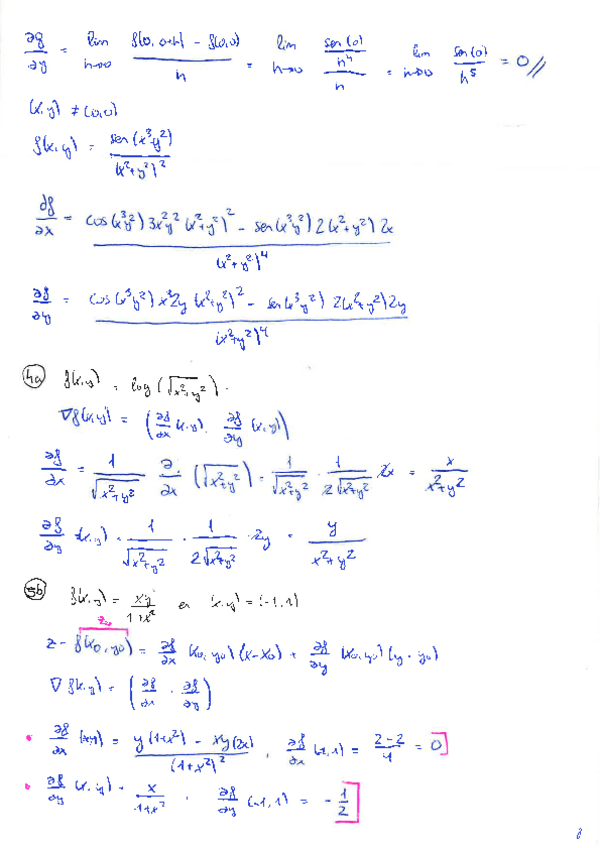 ∂f/∂y = lim h→0 (f(0, 0+h) - f(0,0))/h = lim h→0 (sen(0)/h⁴)/h = lim h→0 sen(0)/h⁵ = 0 //
(x,y) ≠ (0,0)
f(x,y) = sen(x³y²)/(x²+y²)²
∂f/∂x = (cos(x³y²) 3x²y² (x²+y²)² - sen(x³y²) 2(x²+y²) 2x)/(x²+y²)⁴
∂f/∂y = (cos(x³y²) x³2y (x²+y²)² - sen(x³y²) 2(x²+y²) 2y)/(x²+y²)⁴
4a f(x,y) = log(√(x²+y²)).
∇f(x,y) = (∂f/∂x (x,y), ∂f/∂y (x,y))
∂f/∂x = 1/√(x²+y²) ∂/∂x (√(x²+y²)) = 1/√(x²+y²) · 1/(2√(x²+y²)) · 2x = x/(x²+y²)
∂f/∂y (x,y) = 1/√(x²+y²) · 1/(2√(x²+y²)) · 2y = y/(x²+y²)
5b f(x,y) = xy/(1+x²) en (x,y) = (-1,1)
z₀
z - f(x₀,y₀) = ∂f/∂x (x₀,y₀)(x-x₀) + ∂f/∂y (x₀,y₀)(y-y₀)
∇f(x,y) = (∂f/∂x , ∂f/∂y)
• ∂f/∂x (x,y) = (y(1+x²) - xy(2x))/(1+x²)², ∂f/∂x (-1,1) = (2-2)/4 = 0
• ∂f/∂y (x,y) = x/(1+x²), ∂f/∂y (-1,1) = -1/2